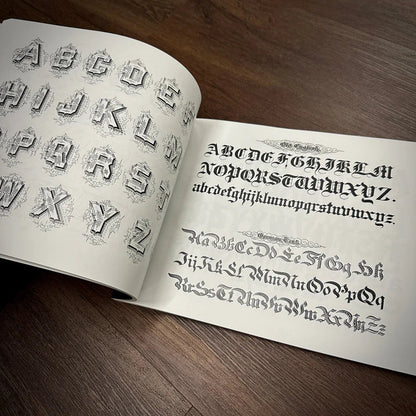 A B C D E
H I J K L M
P Q R S T
X Y Z
Old English
ABCDEFGHIJKLM
NOPQRSTUVWXYZ.
abcdefghijklmnopqrstuvwxyz.
German Text
AaBbCcDdEeFfGgHh
IijjKkLlMmNnOoPpQq
RrSsTtUuVvWwXxYyZz